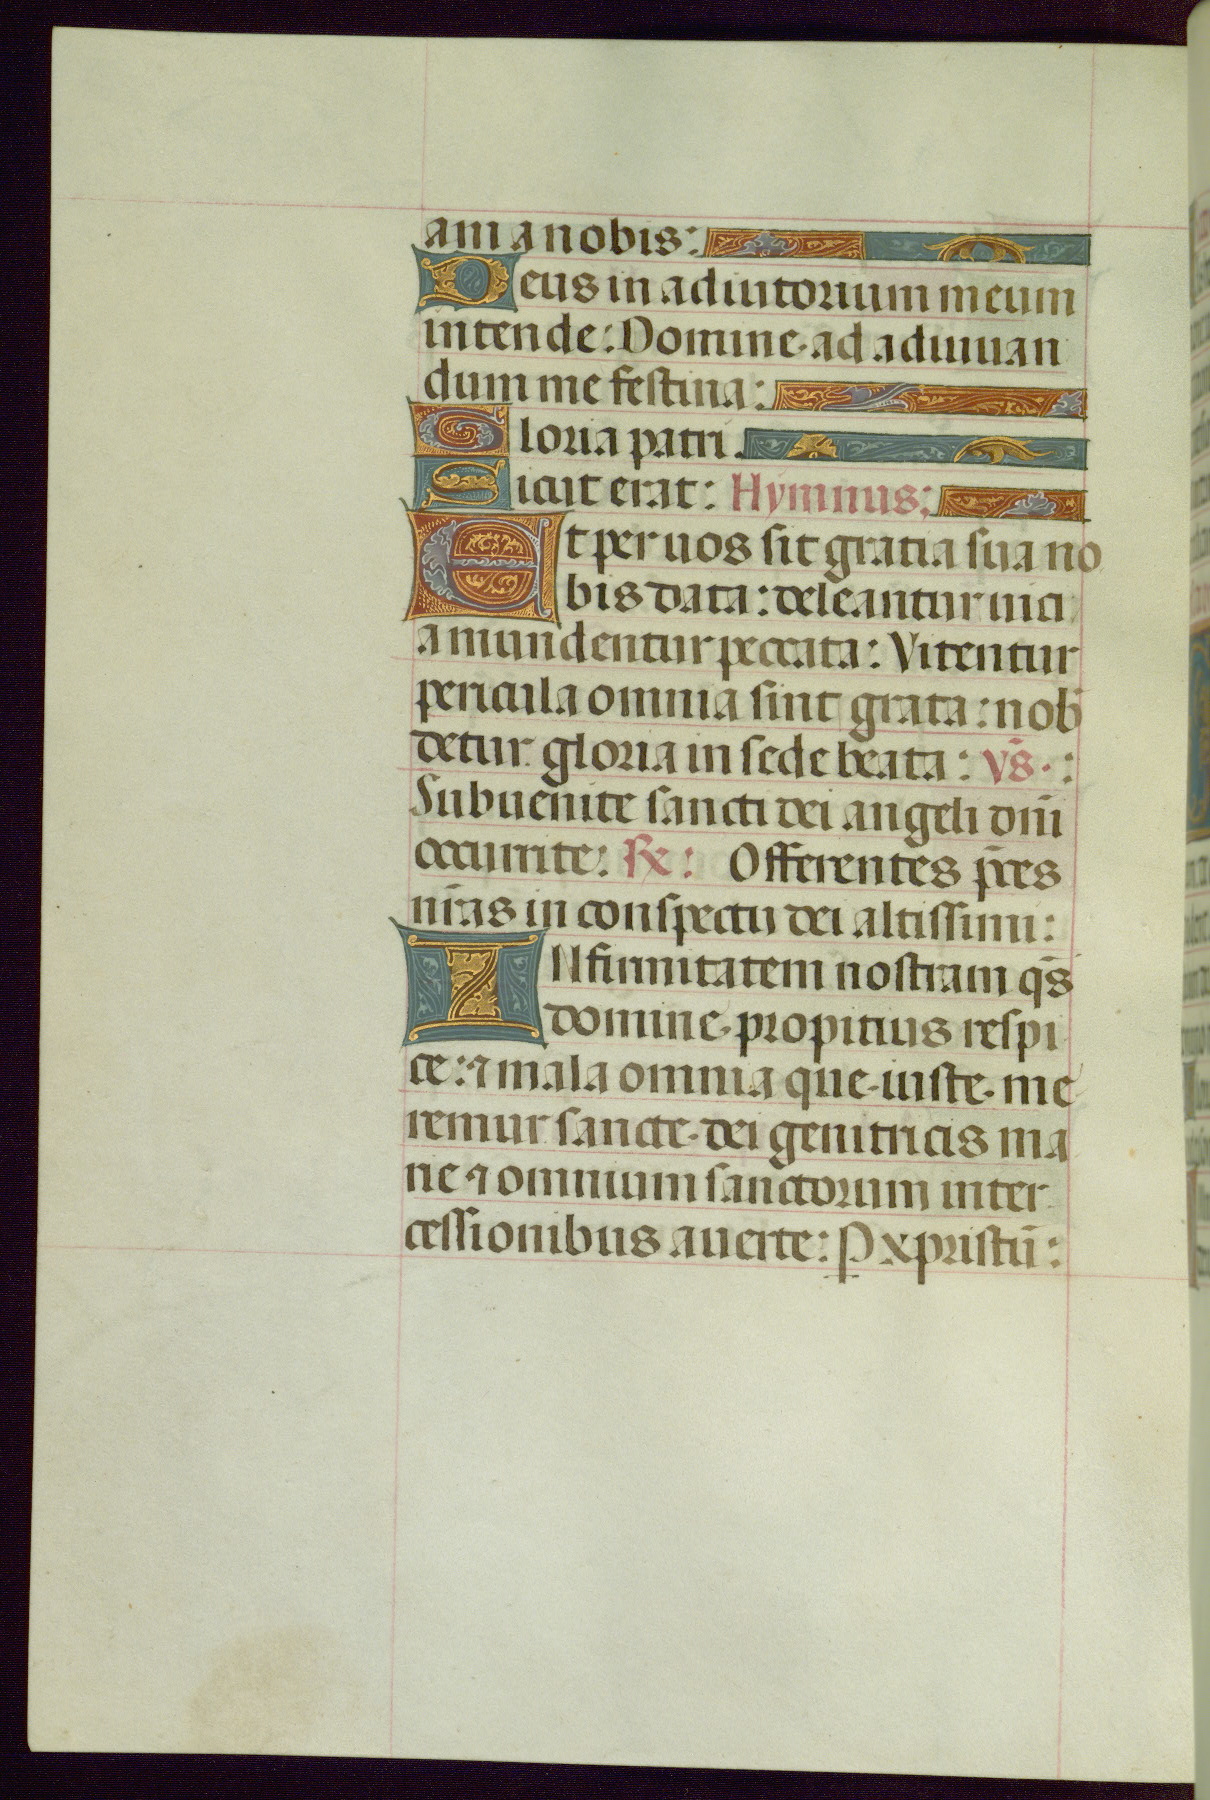 am a nobis:
Deus in adiutorium meum
intende: Domine ad adiuuan
dum me festina:
Gloria patri.
Sicut erat: Hymnus:
Et per uos sit gratia sua no
bis data: deleantur uici
a mundentur peccata: Vitentur
pericula omnia sint grata: nob̄
detur gloria in sede beata: vs̄.:
Subuenite sancti dei angeli dn̄i
occurrite: ℟: Offerentes p̄ces
nr̄as in conspectu dei altissimi:
INfirmitatem nostram qs̄
domine propitius respi
ce: ⁊ mala omnia que iuste me
remur sancte dei genitricis ma
rie ⁊ omnium sanctorum inter
cessionibus auerte: P xpristū: